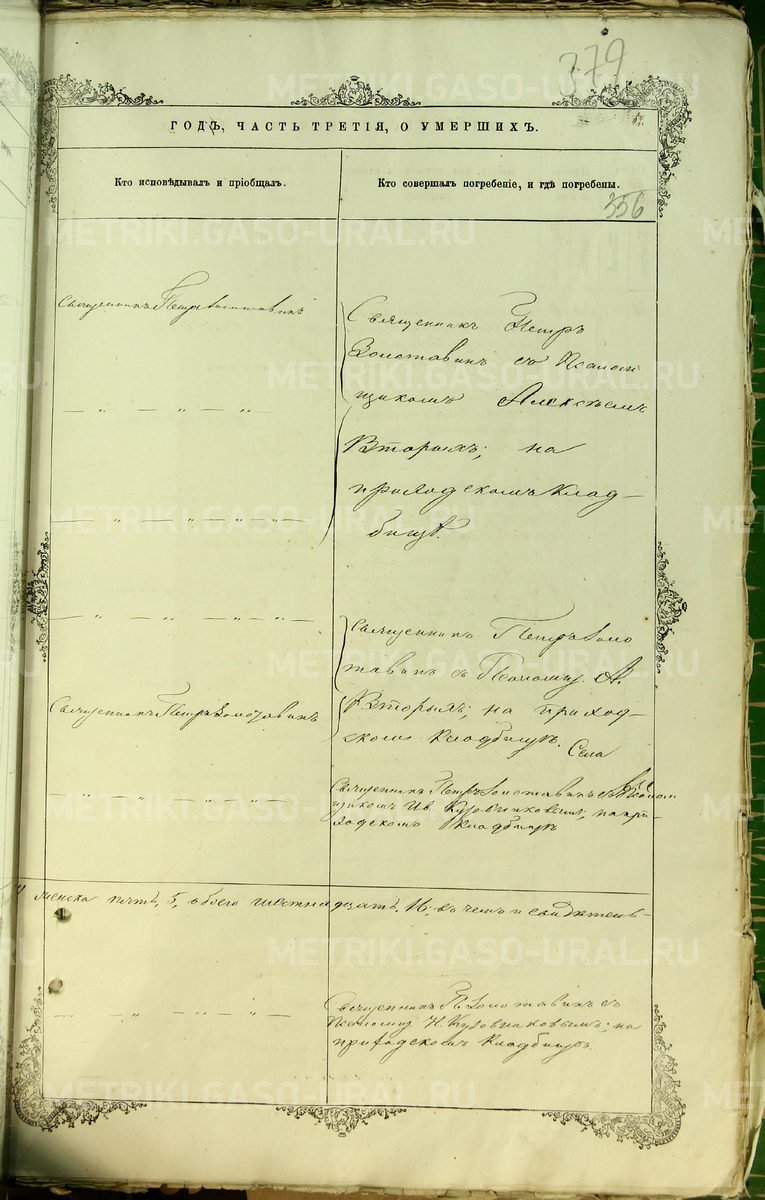 379
ГОДЪ, ЧАСТЬ ТРЕТІЯ, О УМЕРШИХЪ.
Кто исповѣдывалъ и пріобщалъ.
Кто совершалъ погребеніе, и гдѣ погребены.
356
Священникъ Петръ Золотавинъ
Священникъ Петръ
Золотавинъ съ Псаломщи
щикомъ Алексѣемъ
— „ — „ — „
Вторыхъ; на
приходскомъ клад-
— „ — „ — „ —
бищѣ.
— „ — „ — „ —
Священникъ Петръ Золо
тавинъ съ Псаломщ. А.
Священникъ Петръ Золотавинъ
Вторыхъ; на приход-
скомъ кладбищѣ.
Села
— „ — „ — „ —
Священникъ Петръ Золотавинъ съ Псалом
щикомъ Ив. Кузовниковымъ; на при-
ходскомъ кладбищѣ
женска пять, 5, обоего шестнадцать, 16; въ чемъ и свидѣтель-
— „ — „ — „ —
Священникъ П. Золотавинъ съ
Псаломщ. И. Кузовниковымъ; на
приходскомъ кладбищѣ.
METRIKI.GASO-URAL.RU